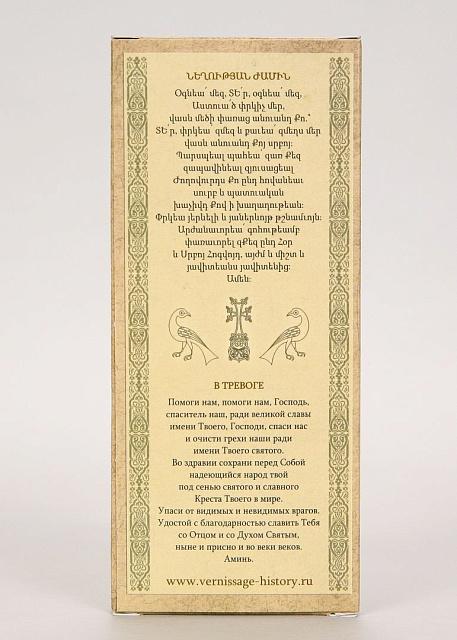 ՆԵՂՈՒԹՅԱՆ ԺԱՄԻՆ
Օգնեա՛ մեզ, ՏԵ՛ր, օգնեա՛ մեզ,
Աստուա՛ծ փրկիչ մեր,
վասն մեծի փառաց անուանդ Քո.՝
ՏԵ՛ր, փրկեա՛ զմեզ և քաւեա՛ զմեղս մեր
վասն անուանդ Քոյ սրբոյ:
Պարսպեալ պահեա՛ զառ Քեզ
զապավինեալ գյուսացեալ
Ժողովուրդս Քո ընդ հովանեաւ
սուրբ և պատուական
խաչիվդ Քով ի խաղաղութեան:
Փրկեա յերնելի և յաներևոյթ թշնամւոյն:
Արժանաւորեա՛ գոհութեամբ
փառաւորել զՔեզ ընդ Հօր
և Սրբոյ Հոգվոյդ, այժմ և միշտ և
յավիտեանս յավիտենից:
Ամեն:
В ТРЕВОГЕ
Помоги нам, помоги нам, Господь,
спаситель наш, ради великой славы
имени Твоего, Господи, спаси нас
и очисти грехи наши ради
имени Твоего святого.
Во здравии сохрани перед Собой
надеющийся народ твой
под сенью святого и славного
Креста Твоего в мире.
Упаси от видимых и невидимых врагов.
Удостой с благодарностью славить Тебя
со Отцом и со Духом Святым,
ныне и присно и во веки веков.
Аминь.
www.vernissage-history.ru